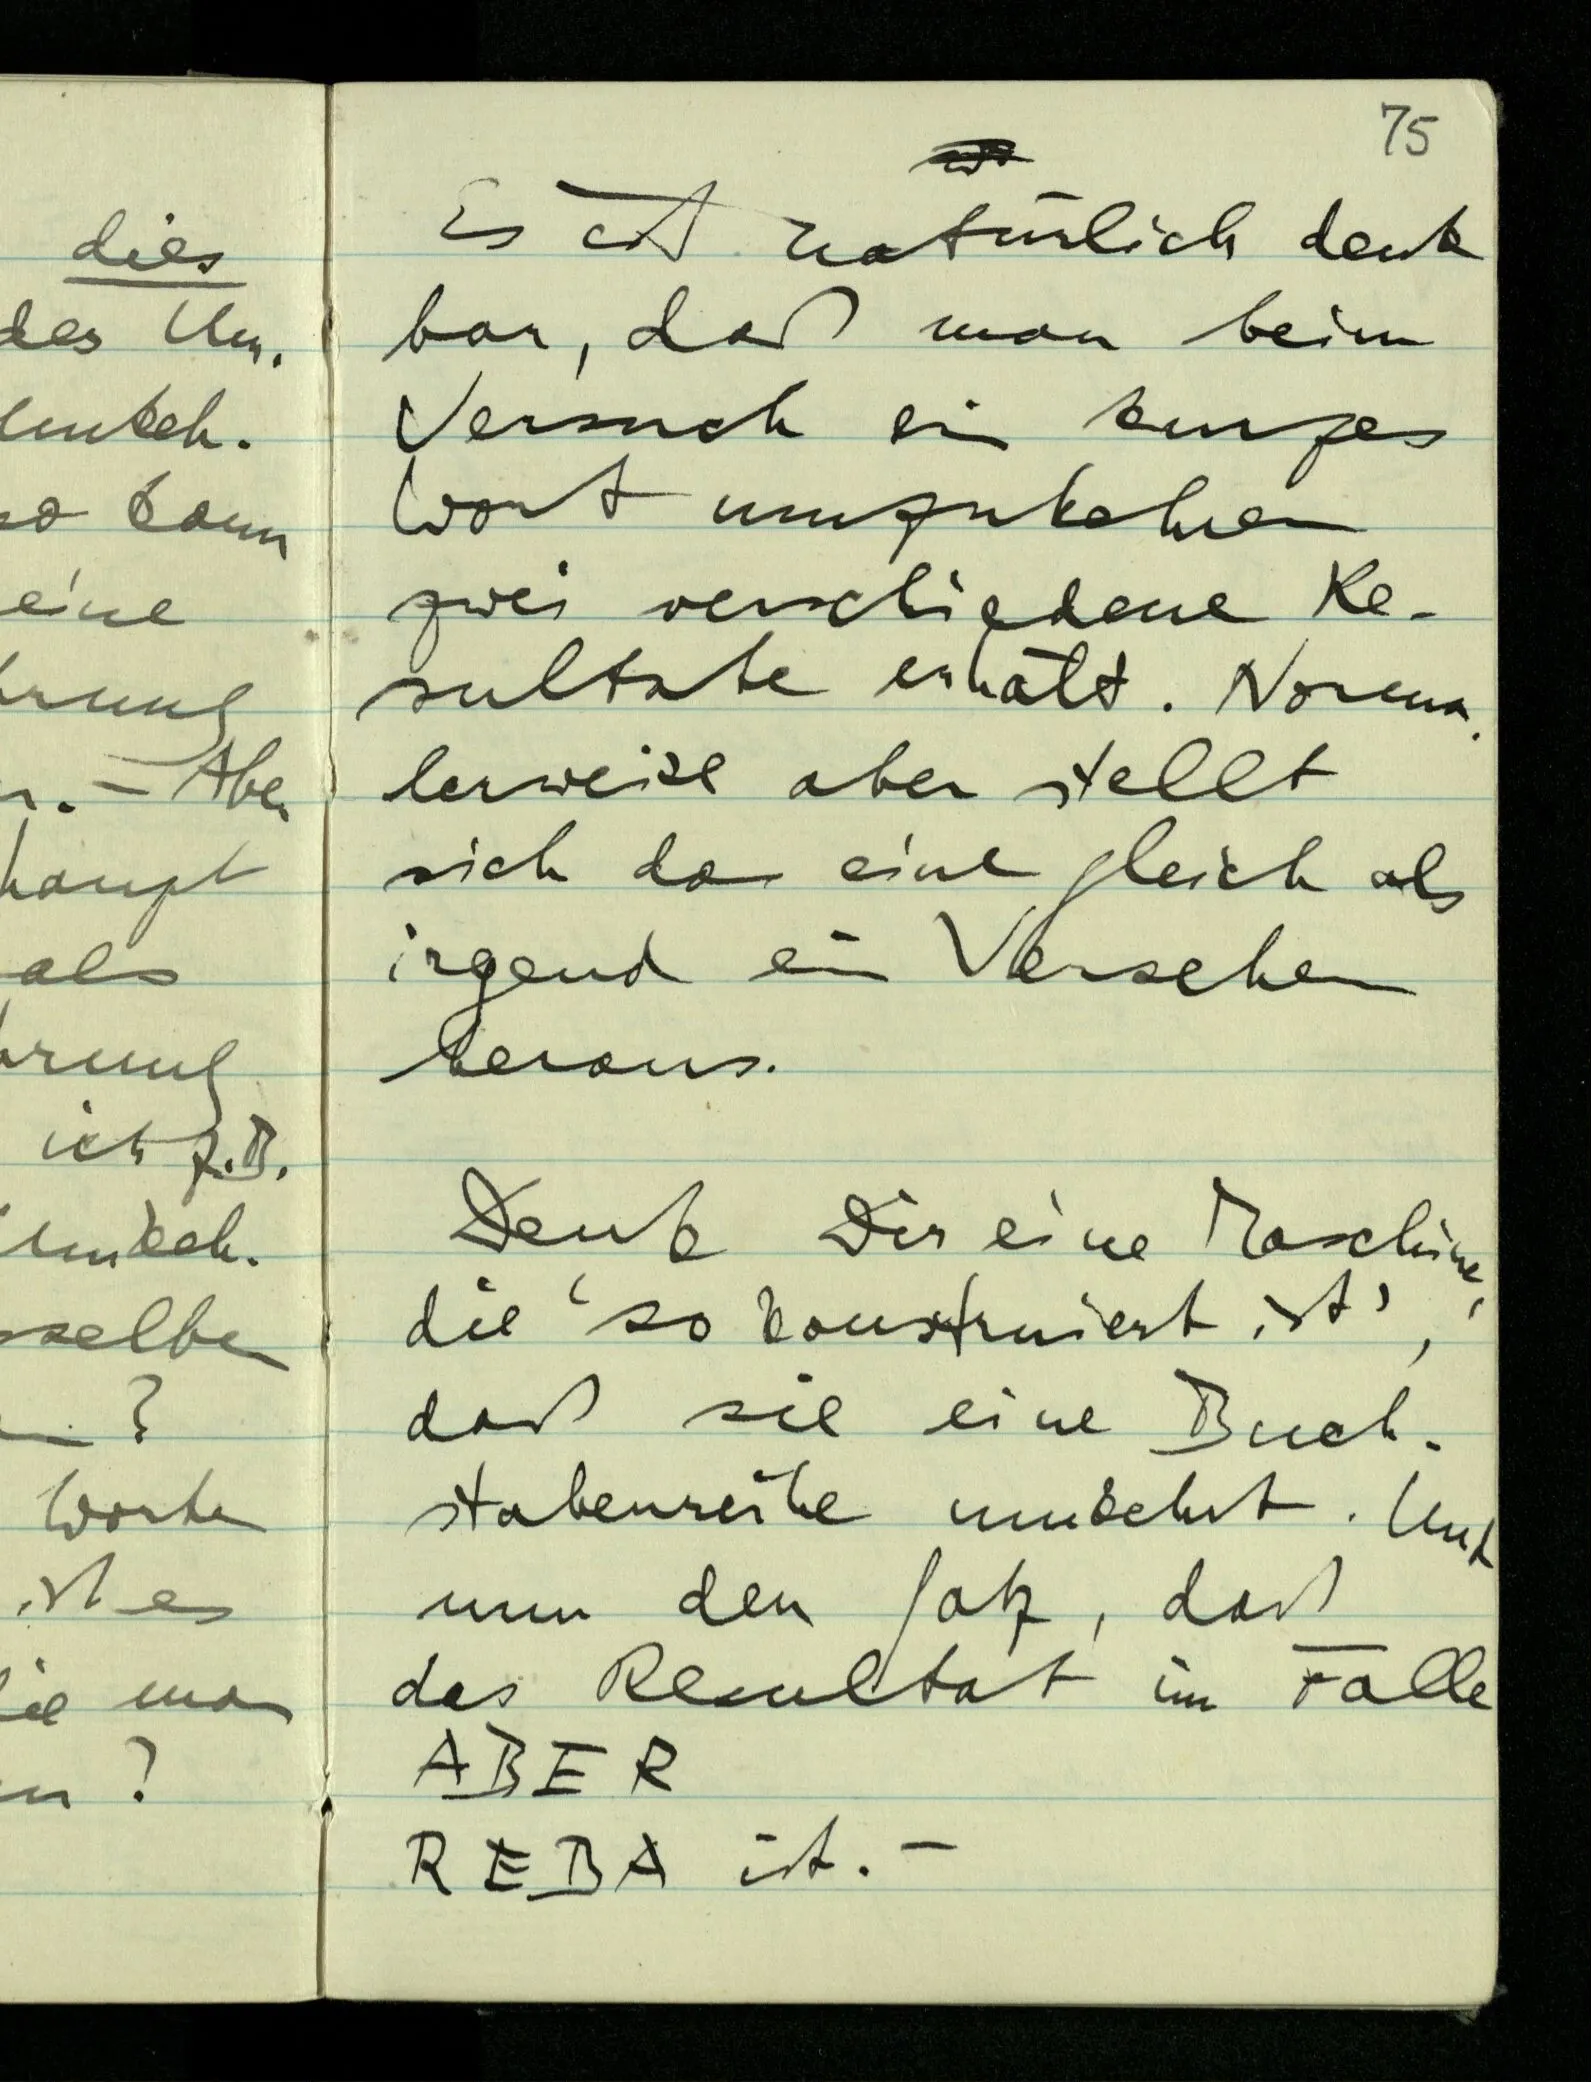 dies
des Um-
umkeh-
so kann
eine
hrung
n. – Aber
haupt
als
hrung
ich z.B.
umkeh-
sselbe
n ?
Worte
ist es
die man
en ?
75
Es ist natürlich denk
bar, daß man beim
Versuch ein kurzes
Wort umzukehren
zwei verschiedene Re-
sultate erhält. Norma-
lerweise aber stellt
sich da eine gleich als
irgend ein Versehen
heraus.
Denk Dir eine Maschine,
die ‘so konstruiert ist’,
daß sie eine Buch-
stabenreihe umkehrt. Und
nun den Satz, daß
das Resultat im Falle
ABER
REBA ist. –